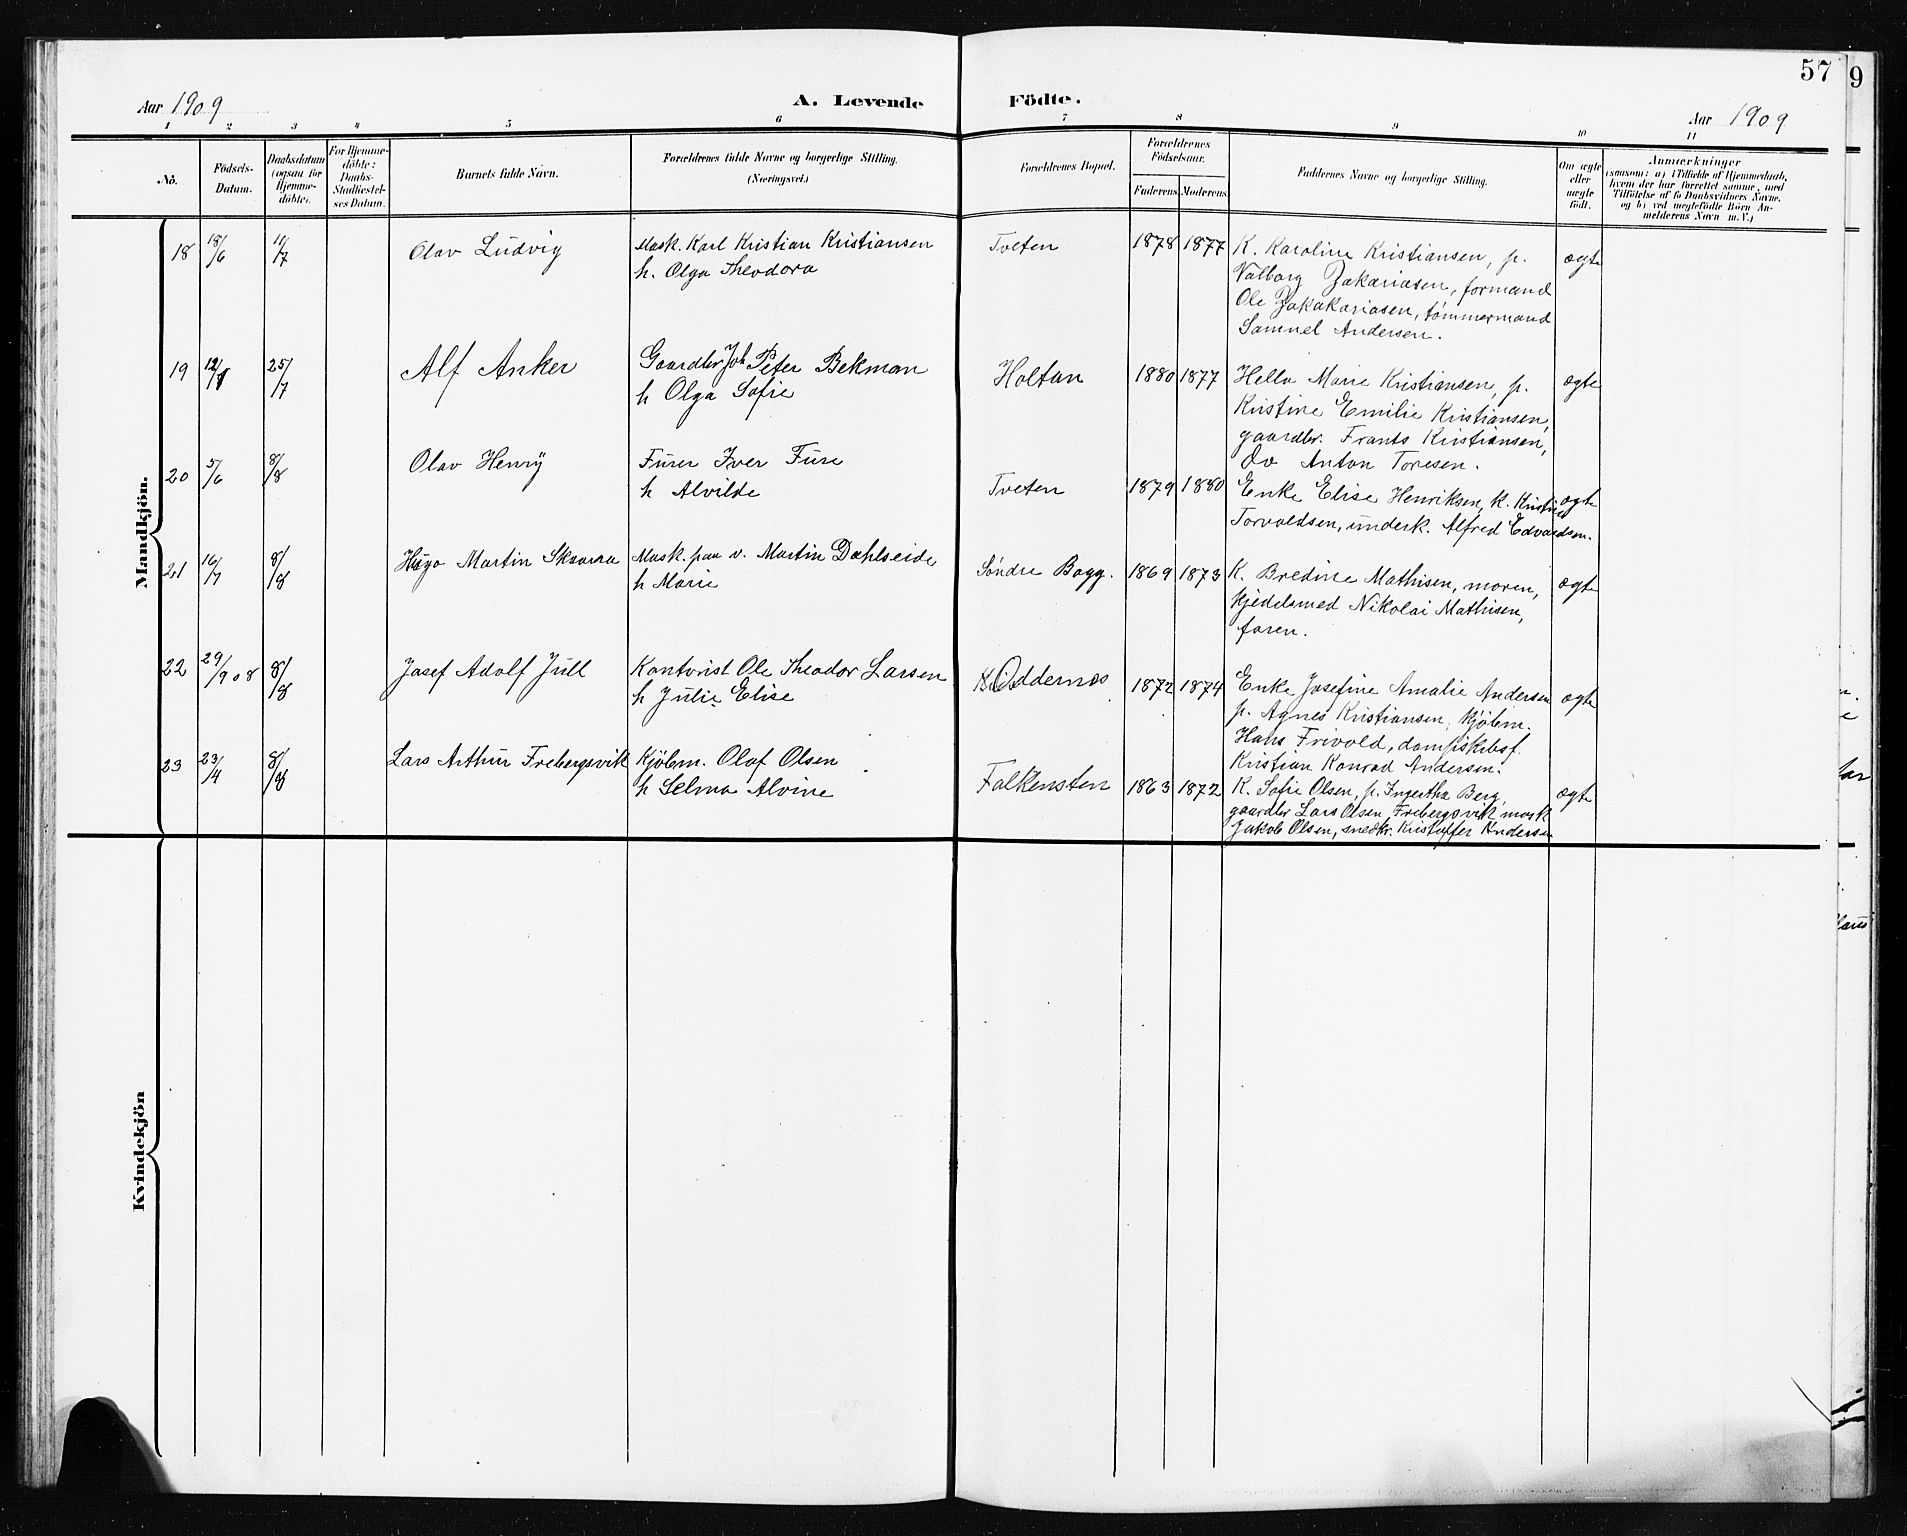 57
9
Aar 1909
A. Levende Födte.
Aar 1909
1 2 3 4 5 6 7 8 9 10 11
No.
Födsels-
Datum.
Daabsdatum
(ogsaa for
Hjemme-
döbte).
For Hjemme-
döbte:
Daabs-
Stadfæstel-
ses Datum.
Barnets fulde Navn.
Forældrenes fulde Navne og borgerlige Stilling.
(Næringsvei.)
Forældrenes Bopæl.
Forældrenes
Födselsaar.
Faderens Moderens
Faddernes Navne og borgerlige Stilling.
Om ægte
eller
uægte
født.
Anmærkninger
(saasom: a) i Tilfælde af Hjemmedaab,
hvem der har forrettet samme, med
Tilföielse af to Daabsvidners Navne,
og b) ved uægtefødte Börn An-
melderens Navn m. V.)
Mandkjön.
18 18/6 11/7 Olav Ludvig Mask. Karl Kristian Kristiansen Tveten 1878 1877 K. Karoline Kristiansen, p. ægte
h. Olga Theodora Valborg Zakariasen, formand
Ole Zakakariasen, tømmermand
Samuel Andersen.
19 12/1 25/7 Alf Anker Gaardbr Joh Peter Bekman Holtan 1880 1877 Hella Marie Kristiansen, p. ægte
h Olga Sofie Kristine Emilie Kristiansen,
gaardbr. Frants Kristiansen,
do Anton Toresen.
20 5/6 8/8 Olav Henry Furer Iver Fure Tveten 1879 1880 Enke Elise Henriksen, K. Kristine ægte
h Alvilde Torvaldsen, underk. Alfred Edvardsen.
21 16/7 8/8 Hugo Martin Skaaraa Mask. paa v. Martin Dahlseide Søndre Bagg. 1869 1873 K. Bredine Mathisen, moren, ægte
h Marie Kjedelsmed Nikolai Mathisen,
faren.
22 29/9 08 8/8 Josef Adolf Jull Kontorist Ole Theodor Larsen Oddernes 1872 1874 Enke Josefine Amalie Andersen ægte
h Julie Elise p. Agnes Kristiansen, Kjøbm.
Hans Frivold, dampskibsf.
Kristian Konrad Andersen.
23 23/4 8/8 Lars Arthur Frebergsvik Kjöbm. Olaf Olsen Falkensten 1863 1872 K. Sofie Olsen, p. Ingertha Berg, ægte
h Selma Alvine gaardbr Lars Olsen, Frebergsvik, mask
Jakob Olsen, snedkr. Kristoffer Andersen
Kvindekjön